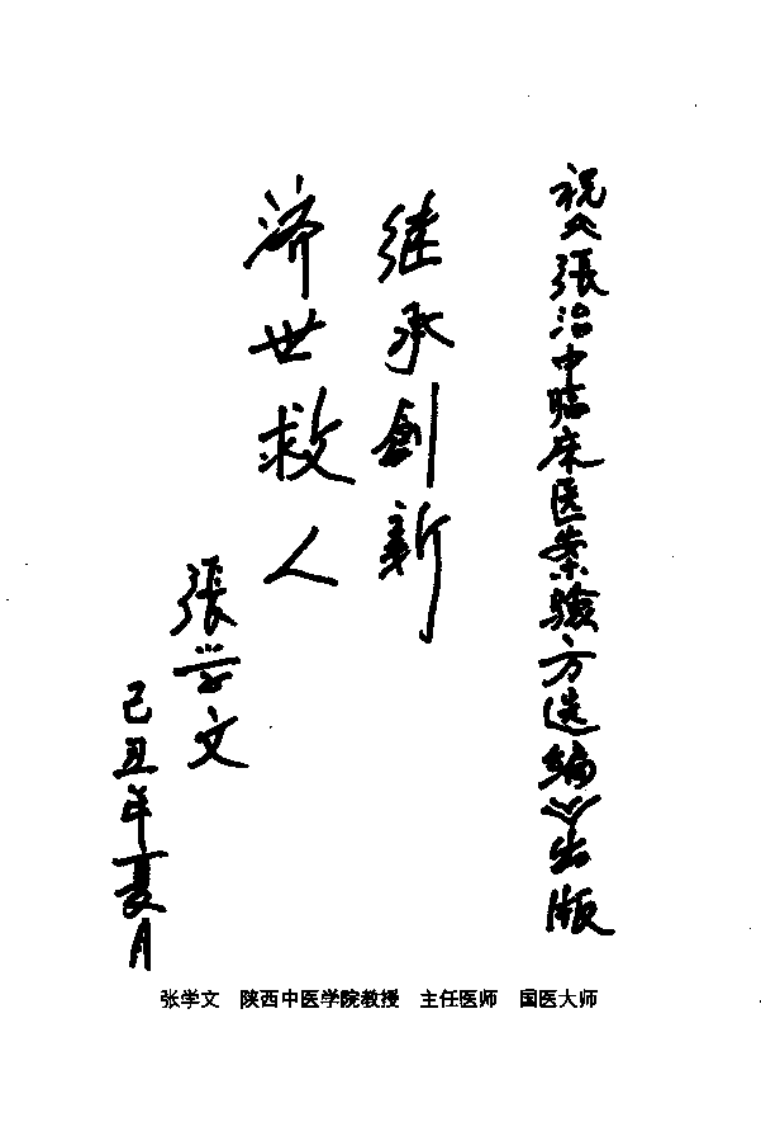 祝《張治中临床医案驗方选编》出版
继承創新
济世救人
張学文
己丑年夏月
张学文 陕西中医学院教授 主任医师 国医大师